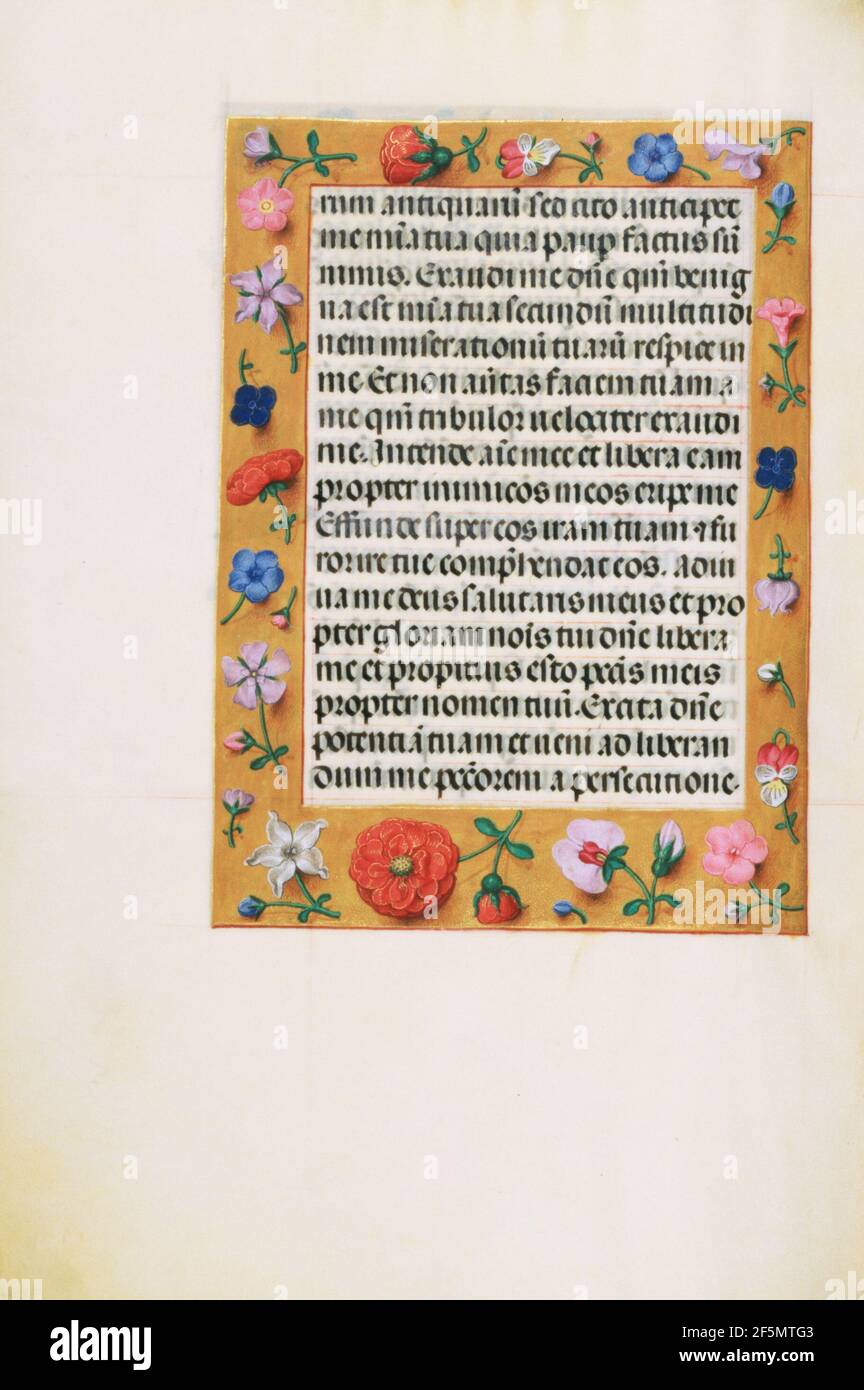 rum antiquarū sed cito anticipēt
me mīa tua quia paup factus sū
nimis. Exaudi me dn̄e qm̄ benig
na est mīa tua secundū multitudi
nem miserationū tuarū respice in
me. Et non au̅tas faciem tuam a
me qm̄ tribulor uelociter exaudi
me. Intende aīe mee et libera eam
propter inimicos meos eripe me
Effunde super eos iram tuam ⁊ fu
ror ire tue comp̄hendat eos. Adiu
ua me deus salutaris meus et pro
pter gloriam noīs tui dn̄e libera
me et propitius esto pcc̄is meis
propter nomen tuū. Excita dn̄e
potentiā tuam et ueni ad liberan
dum me pccōrem a persecutione.
alamy
Image ID: 2F5MTG3
www.alamy.com